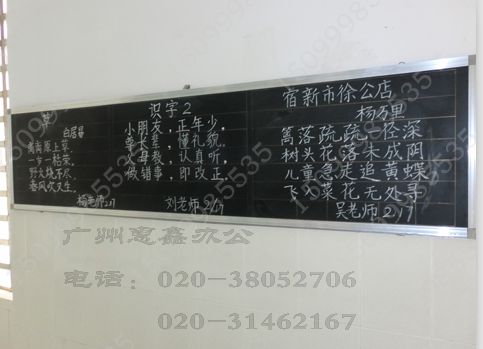 草
白居易
离离原上草
一岁一枯荣
野火烧不尽
春风吹又生
杨老师2.17
识字2
小朋友，正年少，
尊长辈，懂礼貌，
父母教，认真听，
做错事，即改正。
刘老师2.17
宿新市徐公店
杨万里
篱落疏疏一径深
树头花落未成阴
儿童急走追黄蝶
飞入菜花无处寻
吴老师2.17
广州惠鑫办公
电话：020-38052706
020-31462167